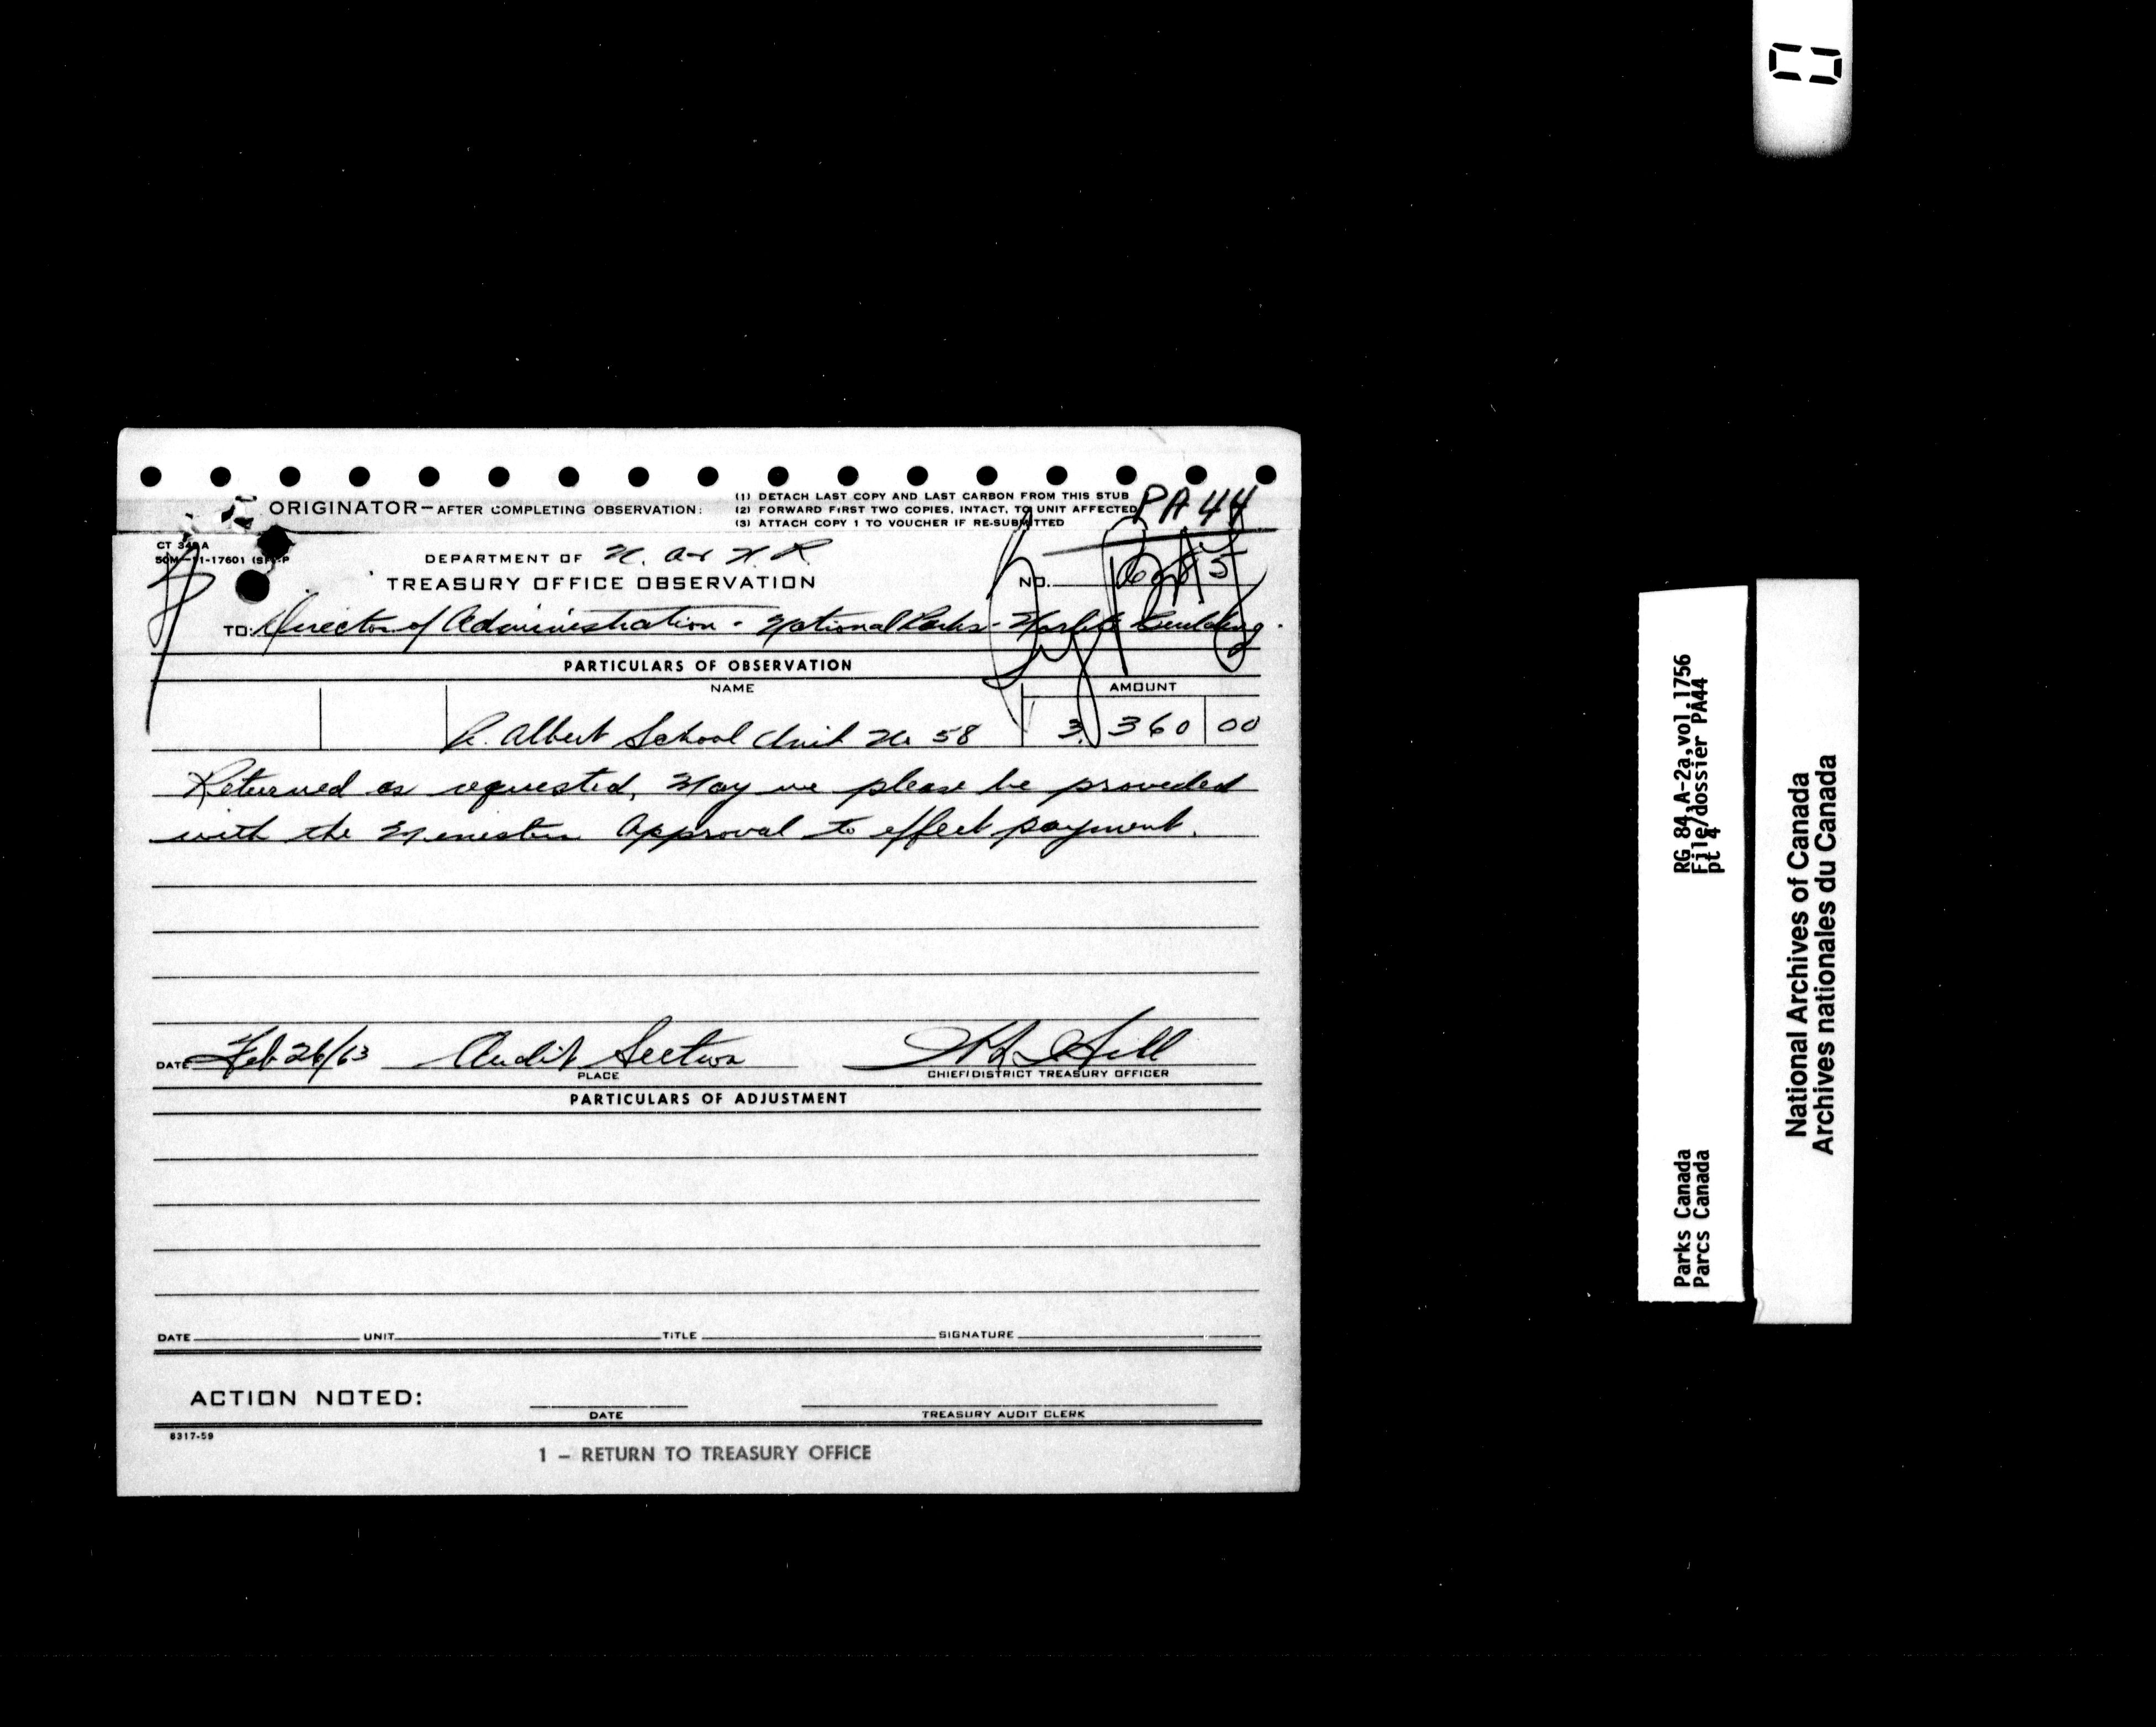 ORIGINATOR—AFTER COMPLETING OBSERVATION:
(1) DETACH LAST COPY AND LAST CARBON FROM THIS STUB
(2) FORWARD FIRST TWO COPIES, INTACT, TO UNIT AFFECTED
(3) ATTACH COPY 1 TO VOUCHER IF RE-SUBMITTED
PA 44
DEPARTMENT OF N. A & N. R
TREASURY OFFICE OBSERVATION
NO.
TO: Director of Administration - National Parks - Building.
PARTICULARS OF OBSERVATION
NAME
AMOUNT
P. Albert School Unit No 58 3,360 00
Returned as requested, May we please be provided
with the Ministers Approval to effect payment.
DATE Feb 26/63 Audit Section Hill
PLACE
CHIEF/DISTRICT TREASURY OFFICER
PARTICULARS OF ADJUSTMENT
DATE UNIT TITLE SIGNATURE
ACTION NOTED:
DATE
TREASURY AUDIT CLERK
8317-59
1 – RETURN TO TREASURY OFFICE
RG 84, A-2a, vol. 1756
File/dossier PA44
pt 4
Parks Canada
Parcs Canada
National Archives of Canada
Archives nationales du Canada